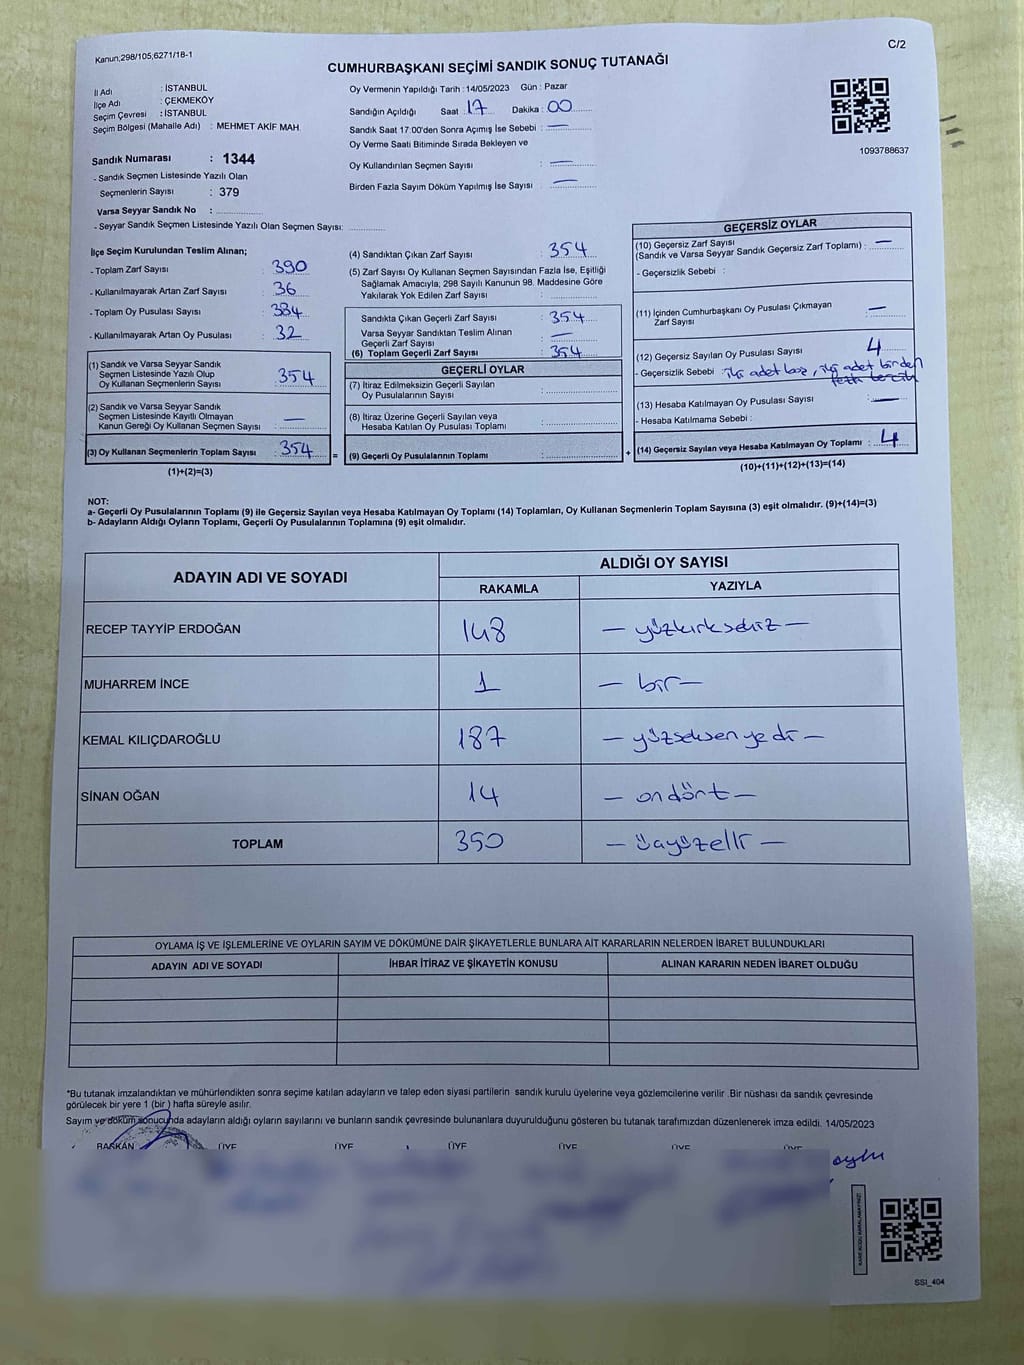 Kanun;298/105;6271/18-1
C/2
CUMHURBAŞKANI SEÇİMİ SANDIK SONUÇ TUTANAĞI
İl Adı : İSTANBUL
İlçe Adı : ÇEKMEKÖY
Seçim Çevresi : İSTANBUL
Seçim Bölgesi (Mahalle Adı) : MEHMET AKİF MAH.
Sandık Numarası : 1344
- Sandık Seçmen Listesinde Yazılı Olan
Seçmenlerin Sayısı : 379
Varsa Seyyar Sandık No :
- Seyyar Sandık Seçmen Listesinde Yazılı Olan Seçmen Sayısı:
Oy Vermenin Yapıldığı Tarih : 14/05/2023 Gün : Pazar
Sandığın Açıldığı Saat : 17 Dakika : 00
Sandık Saat 17.00'den Sonra Açımış İse Sebebi : —
Oy Verme Saati Bitiminde Sırada Bekleyen ve
Oy Kullandırılan Seçmen Sayısı : —
Birden Fazla Sayım Döküm Yapılmış İse Sayısı : —
1093788637
İlçe Seçim Kurulundan Teslim Alınan;
- Toplam Zarf Sayısı : 390
- Kullanılmayarak Artan Zarf Sayısı : 36
- Toplam Oy Pusulası Sayısı :
- Kullanılmayarak Artan Oy Pusulası : 32
(1) Sandık ve Varsa Seyyar Sandık
Seçmen Listesinde Yazılı Olup
Oy Kullanan Seçmenlerin Sayısı : 354
(2) Sandık ve Varsa Seyyar Sandık
Seçmen Listesinde Kayıtlı Olmayan
Kanun Gereği Oy Kullanan Seçmen Sayısı : —
(3) Oy Kullanan Seçmenlerin Toplam Sayısı : 354
(1)+(2)=(3)
(4) Sandıktan Çıkan Zarf Sayısı : 354
(5) Zarf Sayısı Oy Kullanan Seçmen Sayısından Fazla İse, Eşitliği
Sağlamak Amacıyla, 298 Sayılı Kanunun 98. Maddesine Göre
Yakılarak Yok Edilen Zarf Sayısı :
Sandıkta Çıkan Geçerli Zarf Sayısı : 354
Varsa Seyyar Sandıktan Teslim Alınan
Geçerli Zarf Sayısı : —
(6) Toplam Geçerli Zarf Sayısı : 354
GEÇERLİ OYLAR
(7) İtiraz Edilmeksizin Geçerli Sayılan
Oy Pusulalarının Sayısı :
(8) İtiraz Üzerine Geçerli Sayılan veya
Hesaba Katılan Oy Pusulası Toplamı :
= (9) Geçerli Oy Pusulalarının Toplamı : +
GEÇERSİZ OYLAR
(10) Geçersiz Zarf Sayısı
(Sandık ve Varsa Seyyar Sandık Geçersiz Zarf Toplamı) : —
- Geçersizlik Sebebi :
(11) İçinden Cumhurbaşkanı Oy Pusulası Çıkmayan
Zarf Sayısı : —
(12) Geçersiz Sayılan Oy Pusulası Sayısı : 4
- Geçersizlik Sebebi : iki adet boş, iki adet birden
fazla tercih
(13) Hesaba Katılmayan Oy Pusulası Sayısı : —
- Hesaba Katılmama Sebebi :
(14) Geçersiz Sayılan veya Hesaba Katılmayan Oy Toplamı : 4
(10)+(11)+(12)+(13)=(14)
NOT:
a- Geçerli Oy Pusulalarının Toplamı (9) ile Geçersiz Sayılan veya Hesaba Katılmayan Oy Toplamı (14) Toplamları, Oy Kullanan Seçmenlerin Toplam Sayısına (3) eşit olmalıdır. (9)+(14)=(3)
b- Adayların Aldığı Oyların Toplamı, Geçerli Oy Pusulalarının Toplamına (9) eşit olmalıdır.
ADAYIN ADI VE SOYADI
ALDIĞI OY SAYISI
RAKAMLA YAZIYLA
RECEP TAYYİP ERDOĞAN 148 — yüzkırksekiz —
MUHARREM İNCE 1 — bir —
KEMAL KILIÇDAROĞLU 187 — yüzseksenyedi —
SİNAN OĞAN 14 — ondört —
TOPLAM 350 — üçyüzelli —
OYLAMA İŞ VE İŞLEMLERİNE VE OYLARIN SAYIM VE DÖKÜMÜNE DAİR ŞİKAYETLERLE BUNLARA AİT KARARLARIN NELERDEN İBARET BULUNDUKLARI
ADAYIN ADI VE SOYADI İHBAR İTİRAZ VE ŞİKAYETİN KONUSU ALINAN KARARIN NEDEN İBARET OLDUĞU
*Bu tutanak imzalandıktan ve mühürlendikten sonra seçime katılan adayların ve talep eden siyasi partilerin sandık kurulu üyelerine veya gözlemcilerine verilir. Bir nüshası da sandık çevresinde
görülecek bir yere 1 (bir ) hafta süreyle asılır.
Sayım ve döküm sonucunda adayların aldığı oyların sayılarını ve bunların sandık çevresinde bulunanlara duyurulduğunu gösteren bu tutanak tarafımızdan düzenlenerek imza edildi. 14/05/2023
BAŞKAN ÜYE ÜYE ÜYE ÜYE ÜYE ÜYE
KAREKODU KARALAMAYINIZ!
SSI_404